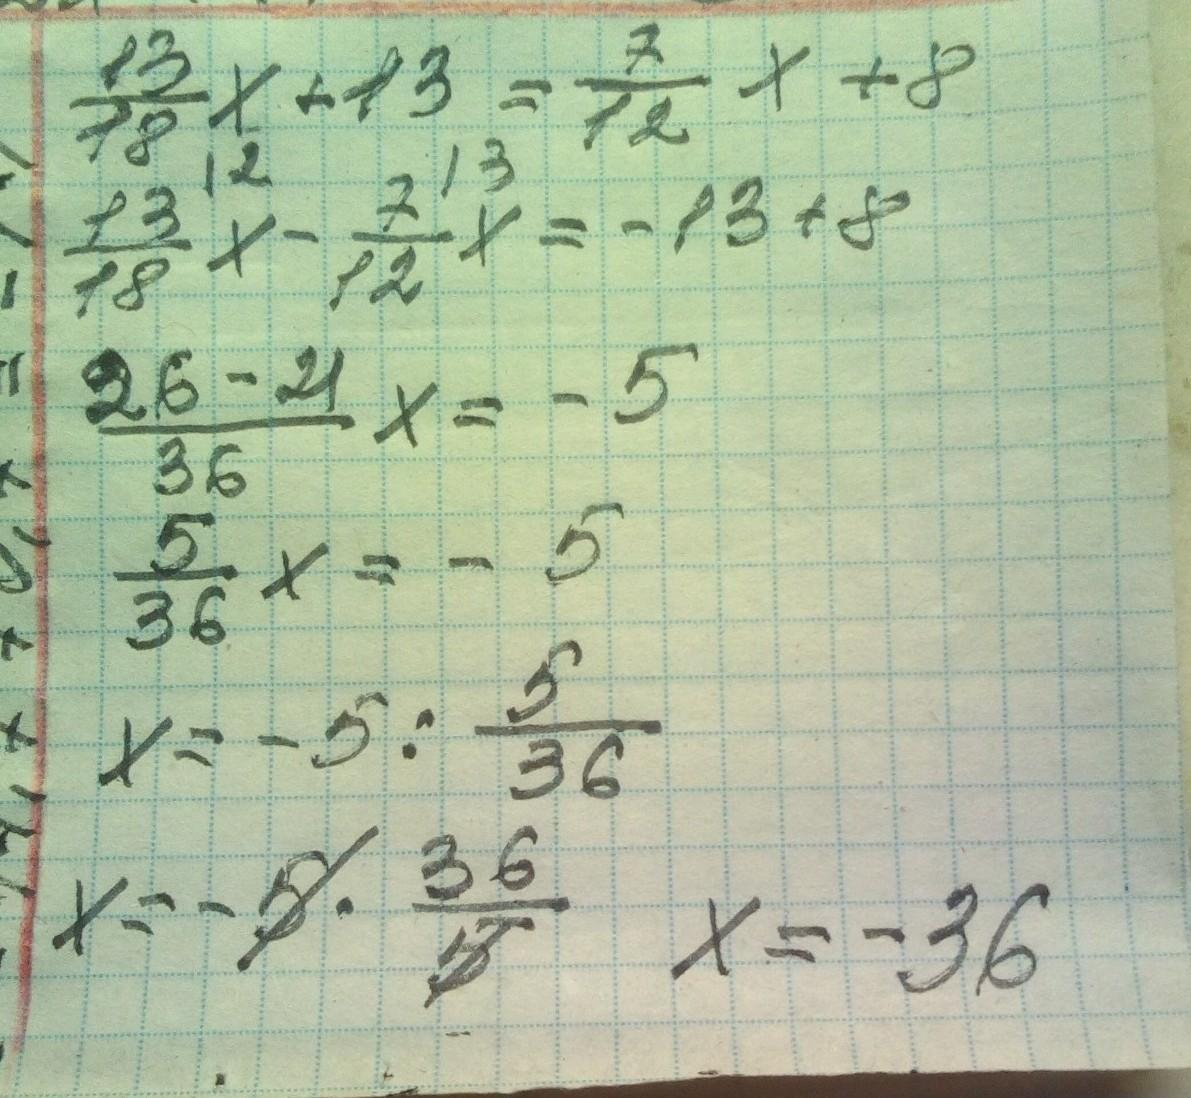 13/18 x + 13 = 7/12 x + 8
13/18 |2 x - 7/12 |3 x = -13 + 8
26 - 21/36 x = - 5
5/36 x = - 5
x = -5 : 5/36
x = -5 · 36/5 x = -36